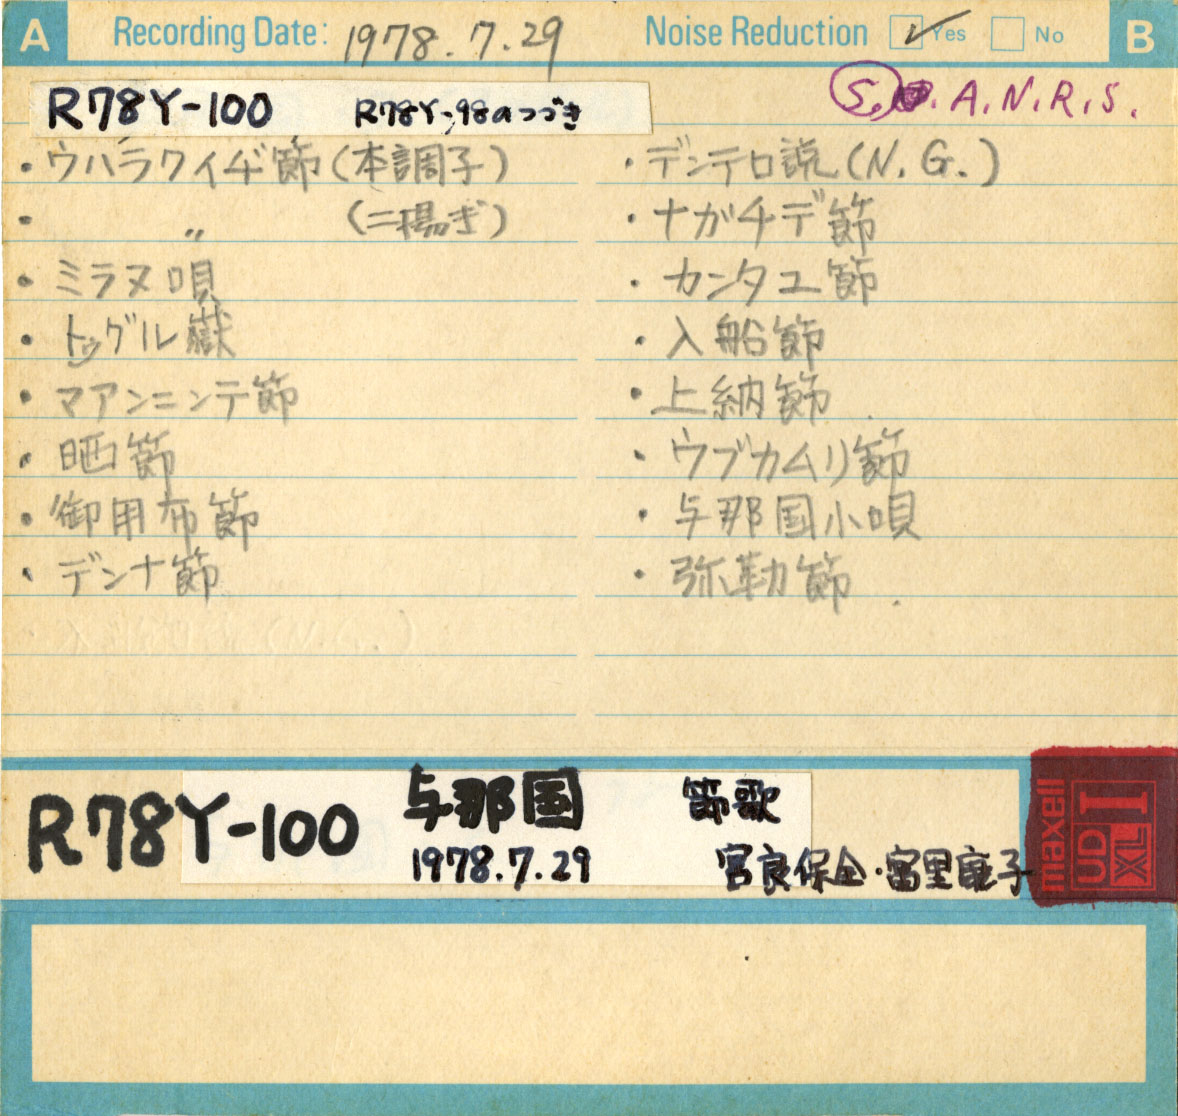 A Recording Date: 1978.7.29 Noise Reduction ✓ Yes No B
R78Y-100 R78Y-98のつづき
S. A.N.R.S.
・ウハラクイヂ節(本調子)
・ 〃 (二揚ぎ)
・ミラヌ唄
・トゥグル嶽
・マアンニンテ節
・晒節
・御用布節
・デンナ節
・デンテロ説(N.G.)
・ナガチデ節
・カンタユ節
・入船節
・上納節
・ウブカムリ節
・与那国小唄
・弥勒節
R78Y-100 与那国 節歌
1978.7.29 宮良保全・富里康子
maxell UD XL I